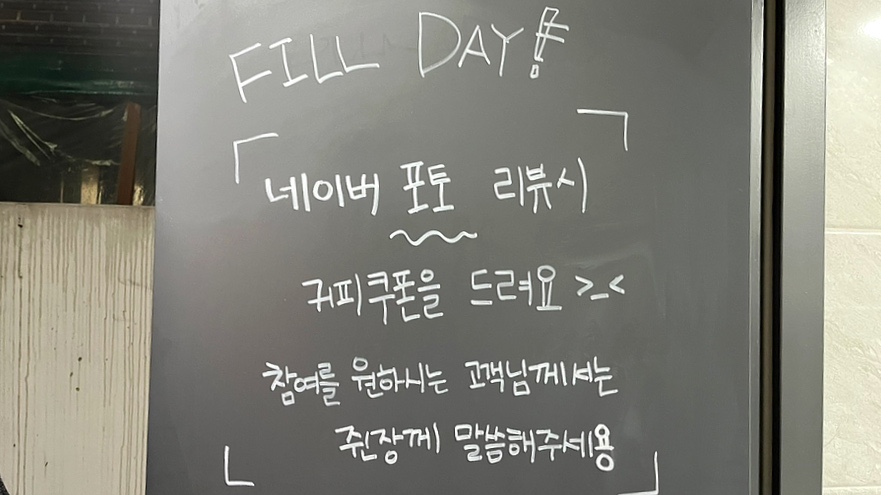 FILL DAY!
네이버 포토 리뷰시
커피쿠폰을 드려요 >_<
참여를 원하시는 고객님께서는
쥔장께 말씀해주세용